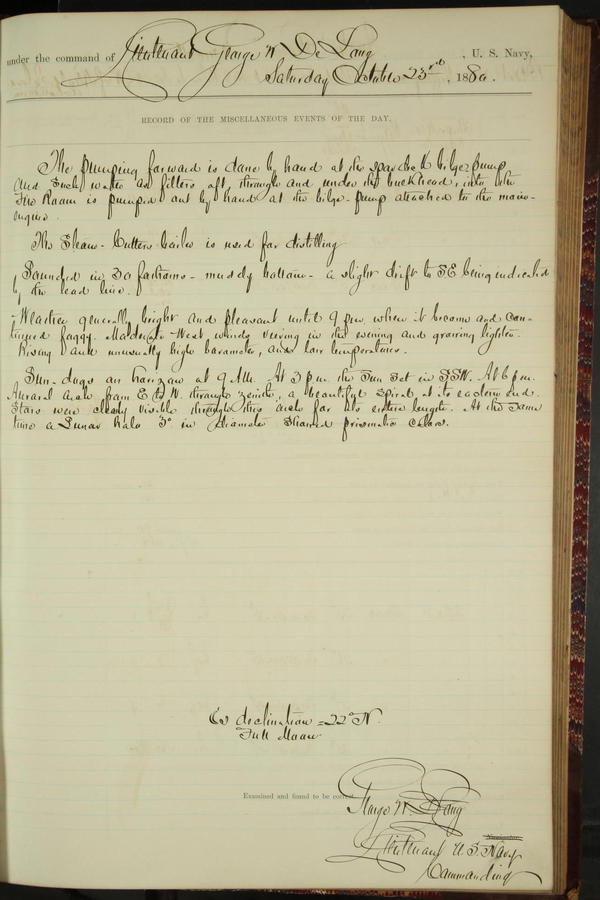 under the command of Lieutenant George W. De Long , U. S. Navy,
Saturday October 23rd , 1880.
RECORD OF THE MISCELLANEOUS EVENTS OF THE DAY.
The pumping forward is done by hand at the spar deck bilge pump
and such water as filters aft through and under the bulkhead, into the
Fire Room is pumped out by hand at the bilge-pump attached to the main-
engine.
The Steam-Cutters boiler is used for distilling
Sounded in 30 fathoms - muddy bottom - a slight drift to SE being indicated
by the lead line.
Weather generally bright and pleasant until 9 pm, when it became and con-
tinued foggy. Moderate West winds veering in the evening and growing lighter.
Rising and unusually high barometer, and low temperatures.
Sun-dogs on horizon at 9 AM. At 3 p.m. the Sun set in SSW. At 6 p.m.
Auroral Arch from E to W. through zenith, a beautiful spiral at its eastern end.
Stars were clearly visible through this arch for its entire length. At the same
time a Lunar halo 3° in diameter showed prismatic colors.
declination = 22° N.
Full Moon
Examined and found to be correct.
George W. De Long
Navigator.
Lieutenant U. S. Navy
Commanding